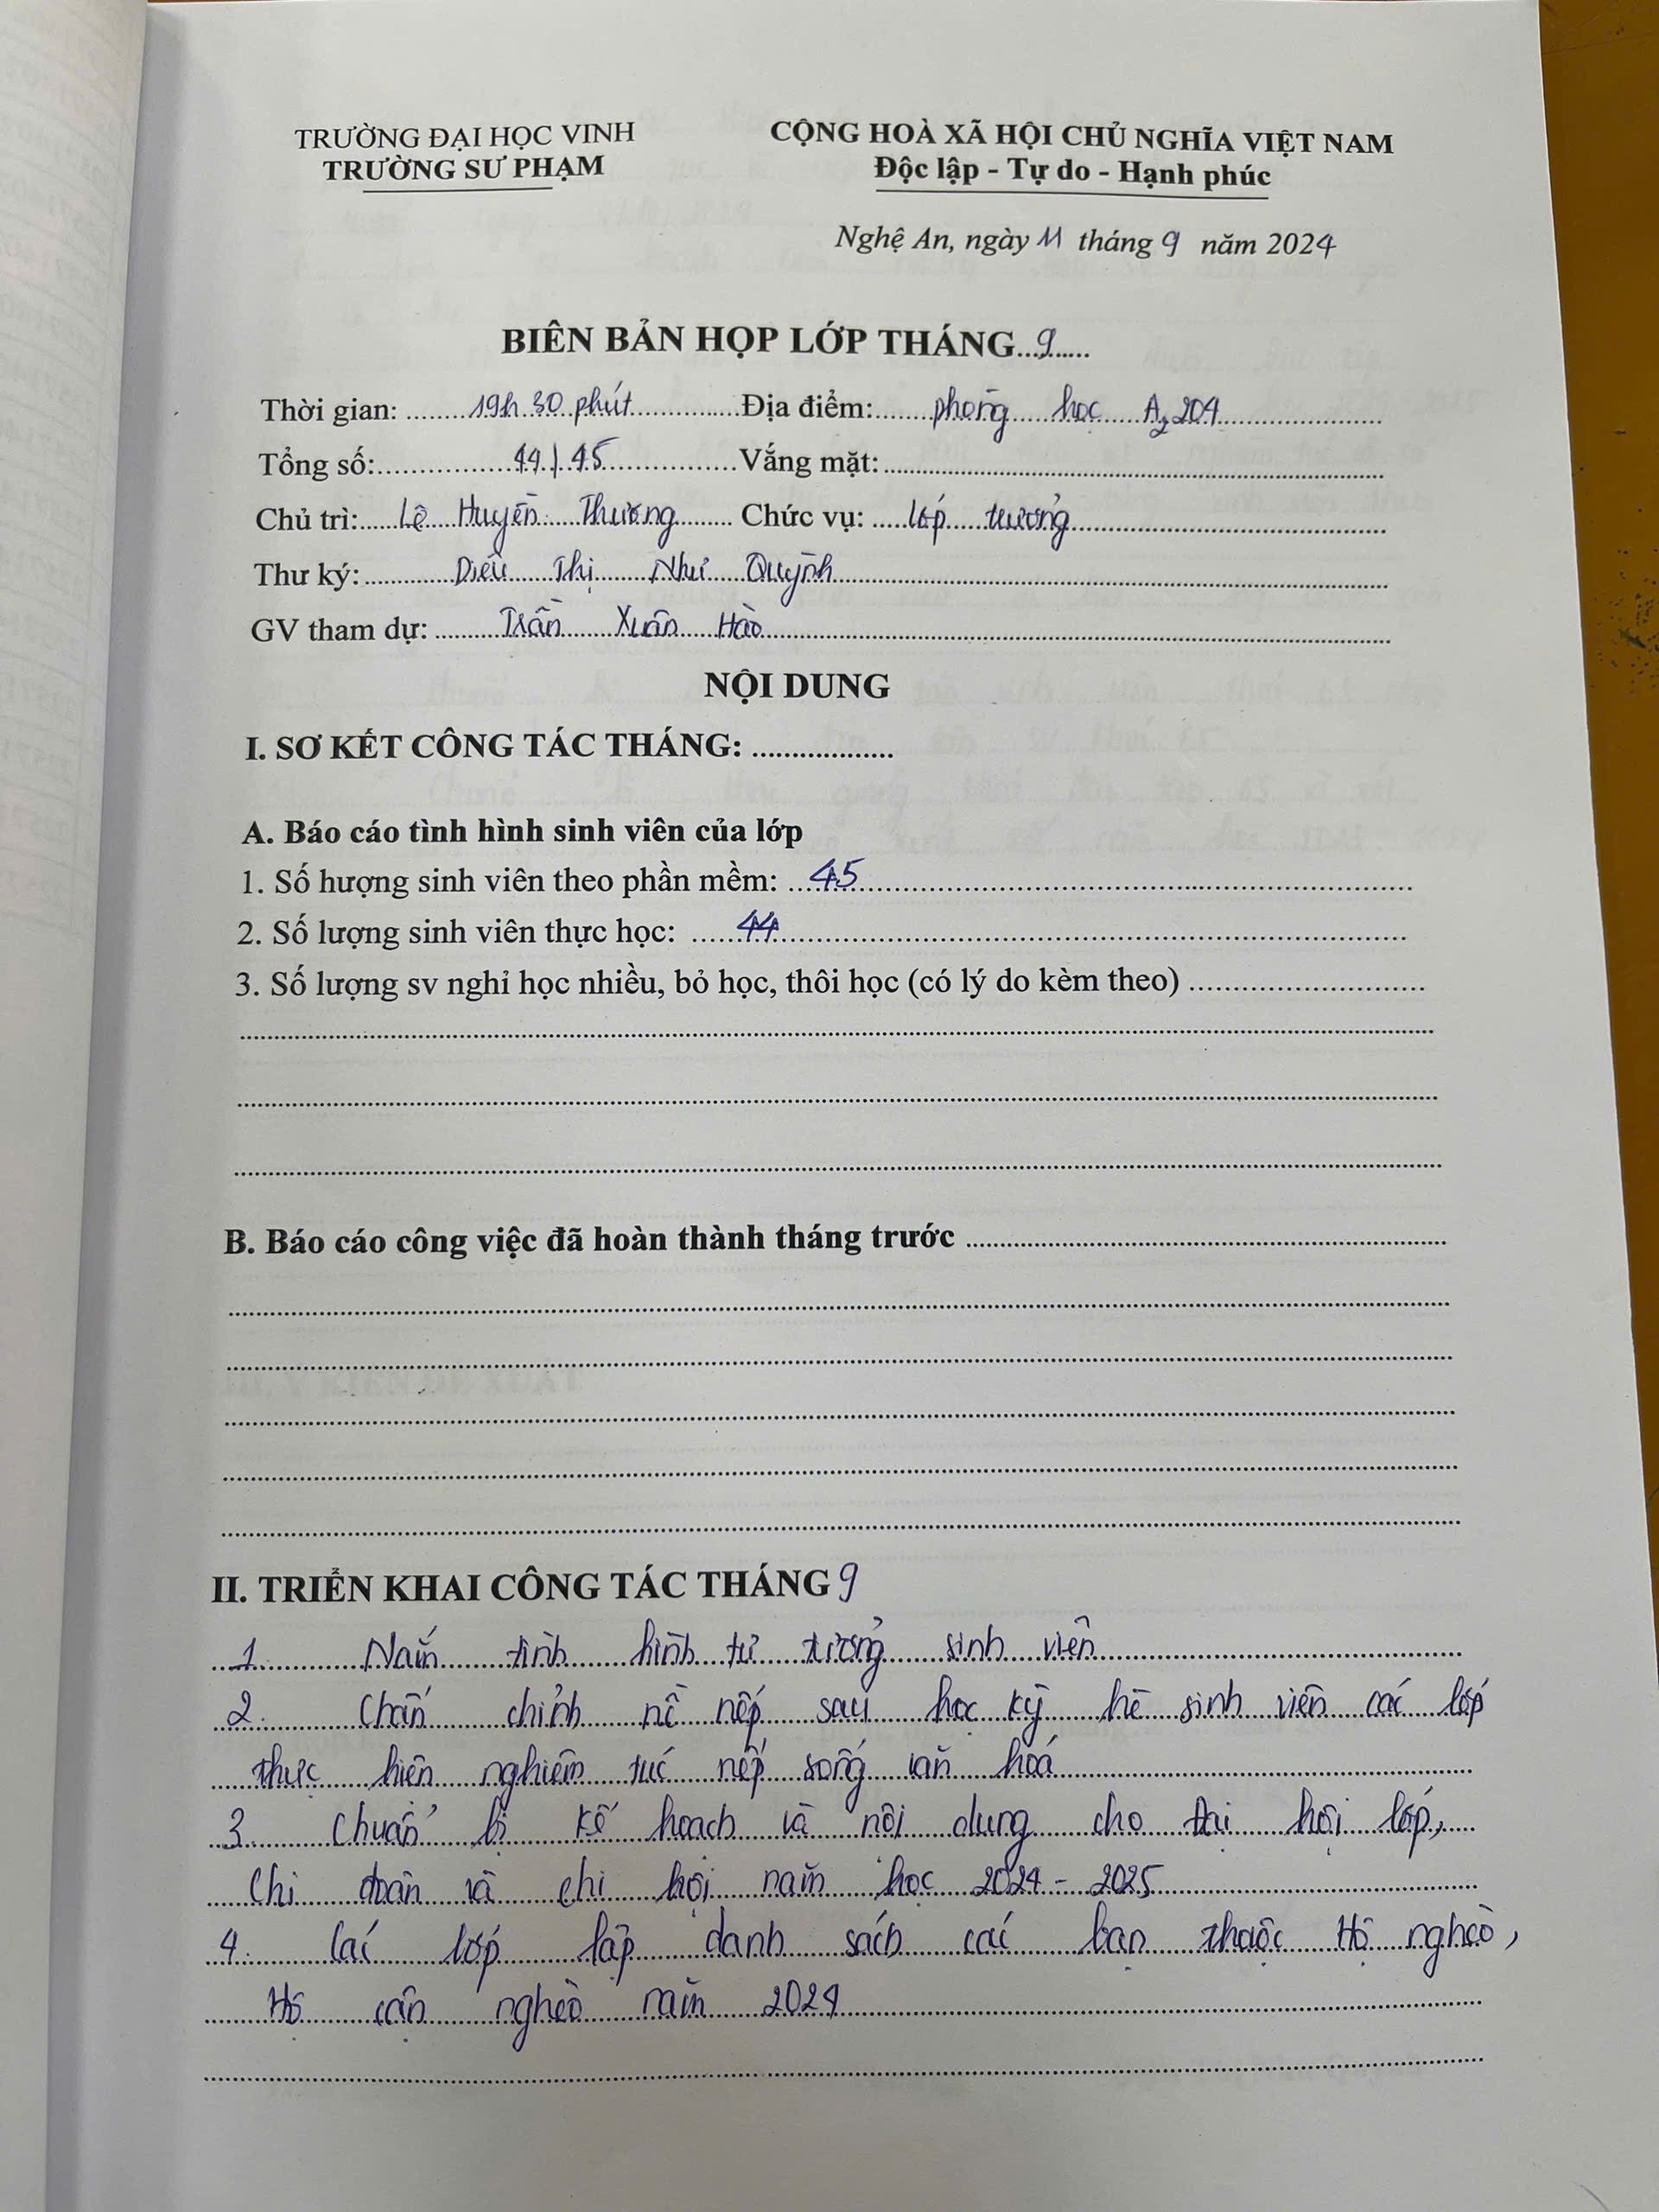 TRƯỜNG ĐẠI HỌC VINH
TRƯỜNG SƯ PHẠM
CỘNG HOÀ XÃ HỘI CHỦ NGHĨA VIỆT NAM
Độc lập - Tự do - Hạnh phúc
Nghệ An, ngày 11 tháng 9 năm 2024
BIÊN BẢN HỌP LỚP THÁNG...9......
Thời gian: ........19h 30 phút...............Địa điểm:.......phòng học A2 204.......................
Tổng số:................44/45..................Vắng mặt:......................................................................
Chủ trì:......Lê Huyền Thương........ Chức vụ: .....lớp trưởng............................................
Thư ký:.............Diêu Thị Như Quỳnh...............................................................................
GV tham dự: .........Trần Xuân Hào...............................................................................
NỘI DUNG
I. SƠ KẾT CÔNG TÁC THÁNG: ..................
A. Báo cáo tình hình sinh viên của lớp
1. Số hượng sinh viên theo phần mềm: ...45.................................................................
2. Số lượng sinh viên thực học: ......44...........................................................................
3. Số lượng sv nghỉ học nhiều, bỏ học, thôi học (có lý do kèm theo) ..............................
B. Báo cáo công việc đã hoàn thành tháng trước ..............................................................
II. TRIỂN KHAI CÔNG TÁC THÁNG 9
1. Nắm tình hình tư tưởng sinh viên
2. Chấn chỉnh nề nếp sau học kỳ hè sinh viên các lớp
thực hiện nghiêm túc nếp sống văn hoá
3. Chuẩn bị kế hoạch và nội dung cho đại hội lớp,
Chi đoàn và chi hội năm học 2024 - 2025
4. Các lớp lập danh sách các bạn thuộc Hộ nghèo,
Hộ cận nghèo năm 2024